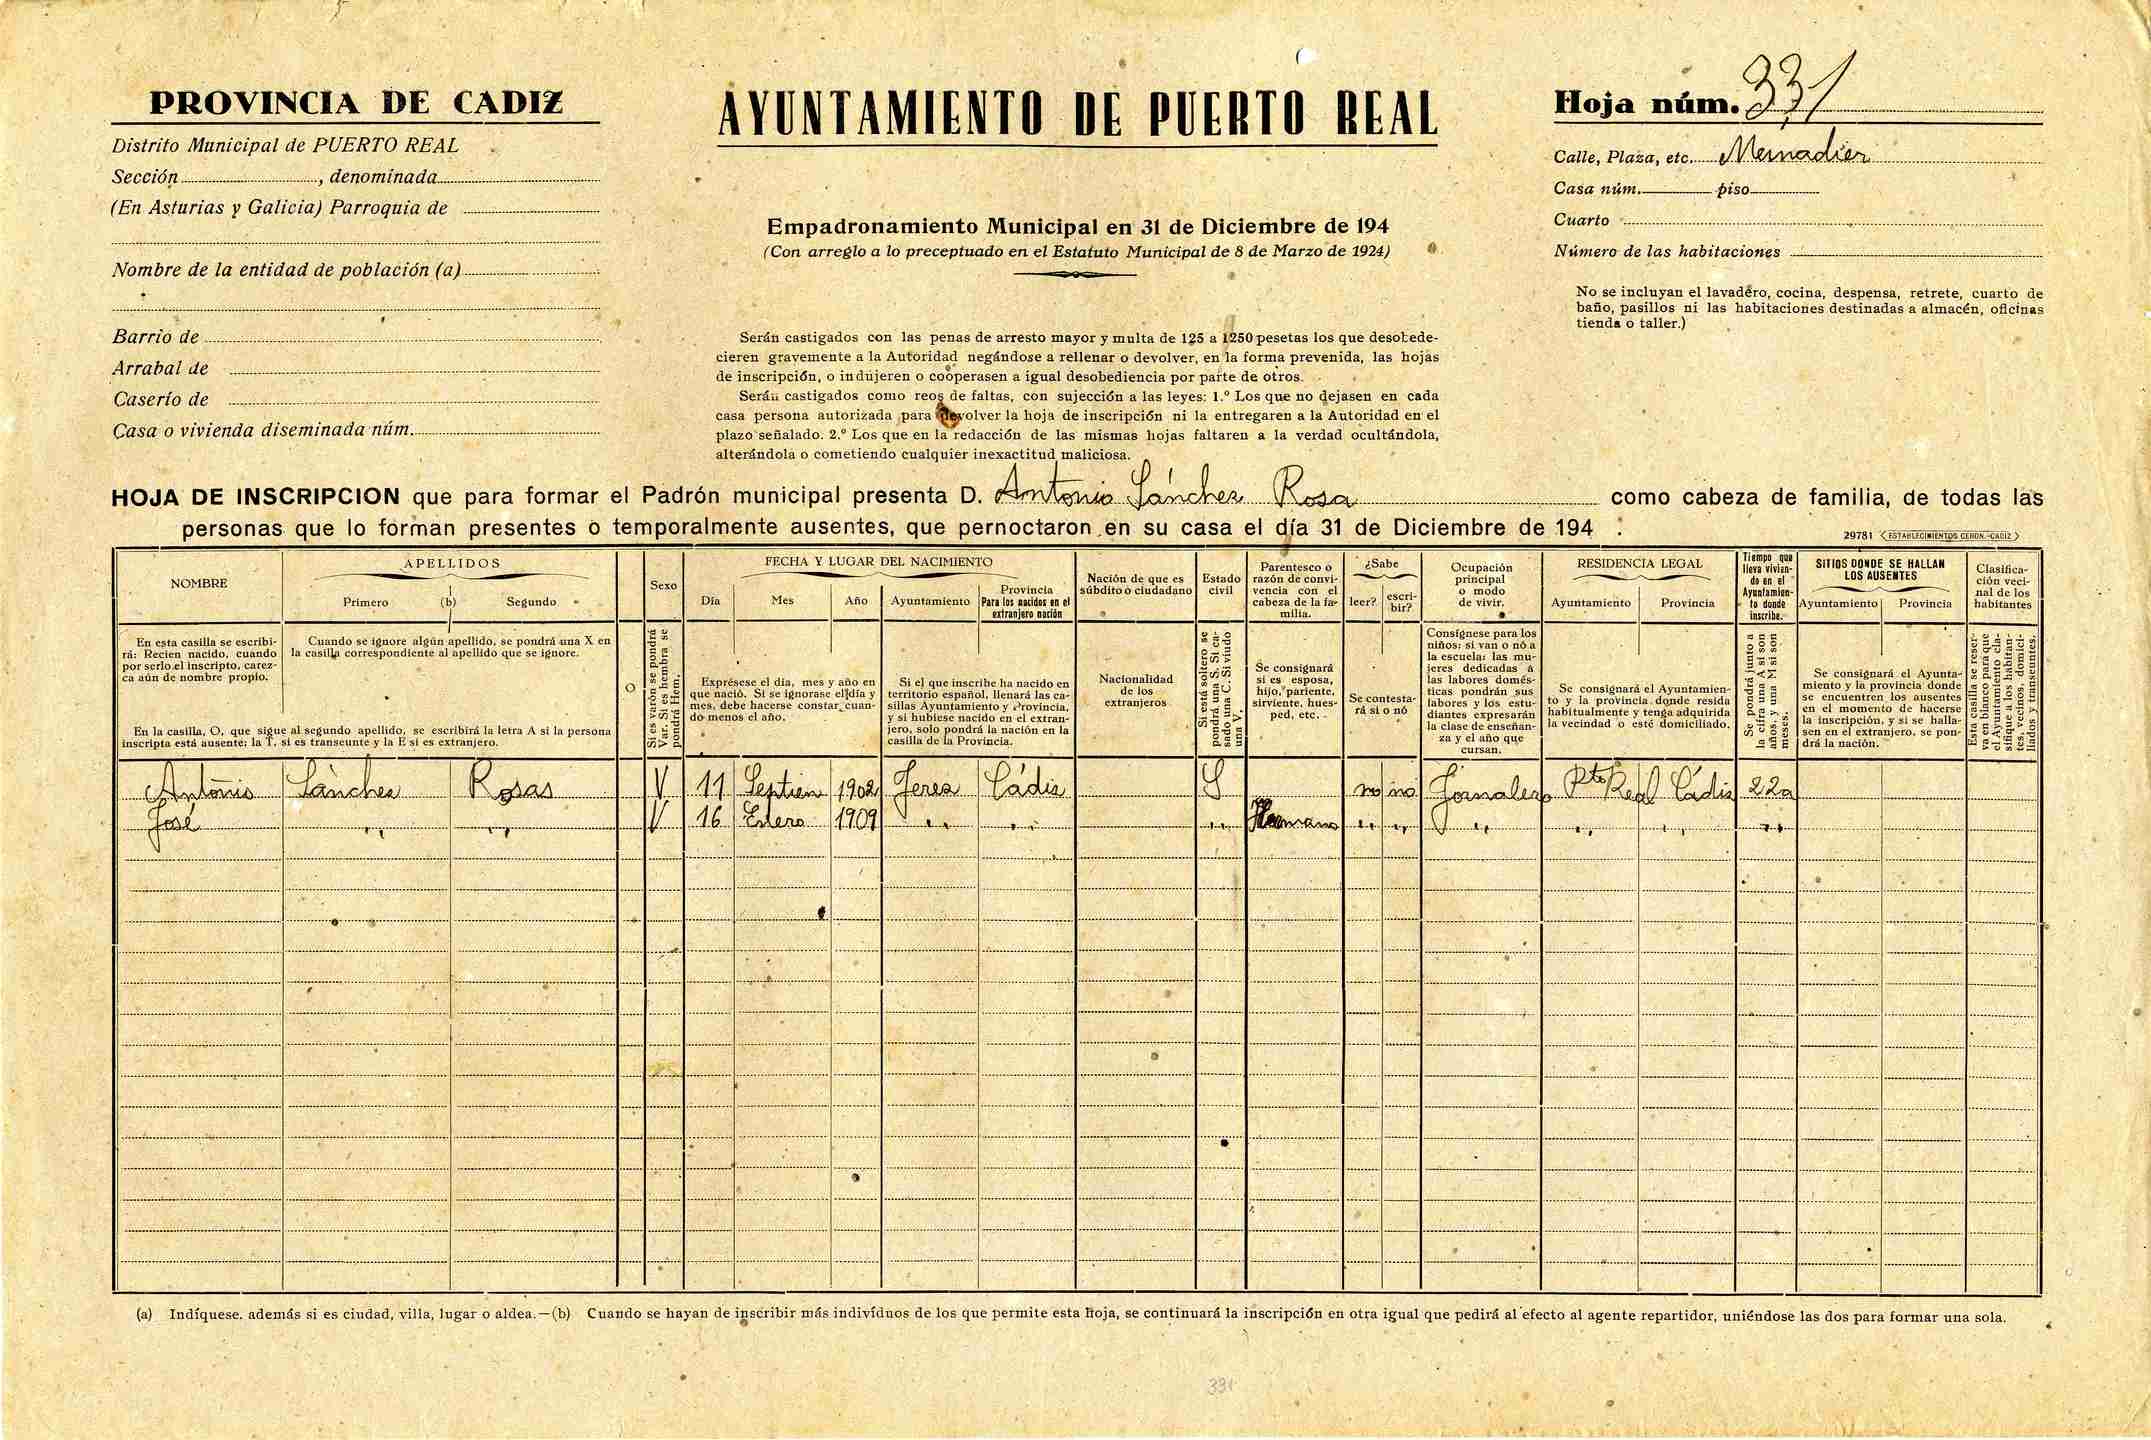 PROVINCIA DE CADIZ
Distrito Municipal de PUERTO REAL
Sección , denominada
(En Asturias y Galicia) Parroquia de
Nombre de la entidad de población (a)
Barrio de
Arrabal de
Caserío de
Casa o vivienda diseminada núm.
AYUNTAMIENTO DE PUERTO REAL
Empadronamiento Municipal en 31 de Diciembre de 194
(Con arreglo a lo preceptuado en el Estatuto Municipal de 8 de Marzo de 1924)
Serán castigados con las penas de arresto mayor y multa de 125 a 1250 pesetas los que desobede-
cieren gravemente a la Autoridad negándose a rellenar o devolver, en la forma prevenida, las hojas
de inscripción, o indujeren o cooperasen a igual desobediencia por parte de otros.
Serán castigados como reos de faltas, con sujección a las leyes: 1.º Los que no dejasen en cada
casa persona autorizada para devolver la hoja de inscripción ni la entregaren a la Autoridad en el
plazo señalado. 2.º Los que en la redacción de las mismas hojas faltaren a la verdad ocultándola,
alterándola o cometiendo cualquier inexactitud maliciosa.
Hoja núm. 331
Calle, Plaza, etc.
Casa núm. piso
Cuarto
Número de las habitaciones
No se incluyan el lavadero, cocina, despensa, retrete, cuarto de
baño, pasillos ni las habitaciones destinadas a almacén, oficinas
tienda o taller.)
HOJA DE INSCRIPCION que para formar el Padrón municipal presenta D. Antonio Sánchez Rosa como cabeza de familia, de todas las
personas que lo forman presentes o temporalmente ausentes, que pernoctaron en su casa el día 31 de Diciembre de 194 .
29781 ESTABLECIMIENTOS CERON.-CADIZ
NOMBRE
APELLIDOS
Primero (b) Segundo
O
Sexo
FECHA Y LUGAR DEL NACIMIENTO
Día Mes Año Ayuntamiento
Provincia
Para los nacidos en el
extranjero nación
Nación de que es
súbdito o ciudadano
Estado
civil
Parentesco o
razón de convi-
vencia con el
cabeza de la fa-
milia.
¿Sabe
leer? escri-
bir?
Ocupación
principal
o modo
de vivir.
RESIDENCIA LEGAL
Ayuntamiento Provincia
Tiempo que
lleva vivien-
do en el
Ayuntamien-
to donde
inscribe.
SITIOS DONDE SE HALLAN
LOS AUSENTES
Ayuntamiento Provincia
Clasifica-
ción veci-
nal de los
habitantes
En esta casilla se escribi-
rá: Recien nacido, cuando
por serlo el inscripto, carez-
ca aún de nombre propio.
Cuando se ignore algún apellido, se pondrá una X en
la casilla correspondiente al apellido que se ignore.
En la casilla, O, que sigue al segundo apellido, se escribirá la letra A si la persona
inscripta está ausente: la T, si es transeunte y la E si es extranjero.
Si es varón se pondrá
Var. Si es hembra se
pondrá Hem.
Exprésese el día, mes y año en
que nació. Si se ignorase el día y
mes, debe hacerse constar cuan-
do menos el año.
Si el que inscribe ha nacido en
territorio español, llenará las ca-
sillas Ayuntamiento y Provincia,
y si hubiese nacido en el extran-
jero, solo pondrá la nación en la
casilla de la Provincia.
Nacionalidad
de los
extranjeros
Si está soltero se
pondrá una S. Si ca-
sado una C. Si viudo
una V.
Se consignará
si es esposa,
hijo, pariente,
sirviente, hues-
ped, etc.
Se contesta-
rá si o nó
Consígnese para los
niños: si van o nó a
la escuela: las mu-
jeres dedicadas á
las labores domés-
ticas pondrán sus
labores y los estu-
diantes expresarán
la clase de enseñan-
za y el año que
cursan.
Se consignará el Ayuntamien-
to y la provincia donde resida
habitualmente y tenga adquirida
la vecindad o esté domiciliado.
Se pondrá junto a
la cifra una A si son
años, y una M si son
meses.
Se consignará el Ayunta-
miento y la provincia donde
se encuentren los ausentes
en el momento de hacerse
la inscripción, y si se halla-
sen en el extranjero, se pon-
drá la nación.
Esta casilla se reser-
va en blanco para que
el Ayuntamiento cla-
sifique a los habitan-
tes, vecinos, domici-
liados y transeuntes.
Antonio Sánchez Rosas V 11 Septien 1902 Jerez Cádiz S no no Jornalero Pto Real Cádiz 22a
José " " V 16 Enero 1909 " " " Hermano " " " " " "
(a) Indíquese. además si es ciudad, villa, lugar o aldea.—(b) Cuando se hayan de inscribir más indivíduos de los que permite esta hoja, se continuará la inscripción en otra igual que pedirá al efecto al agente repartidor, uniéndose las dos para formar una sola.
331